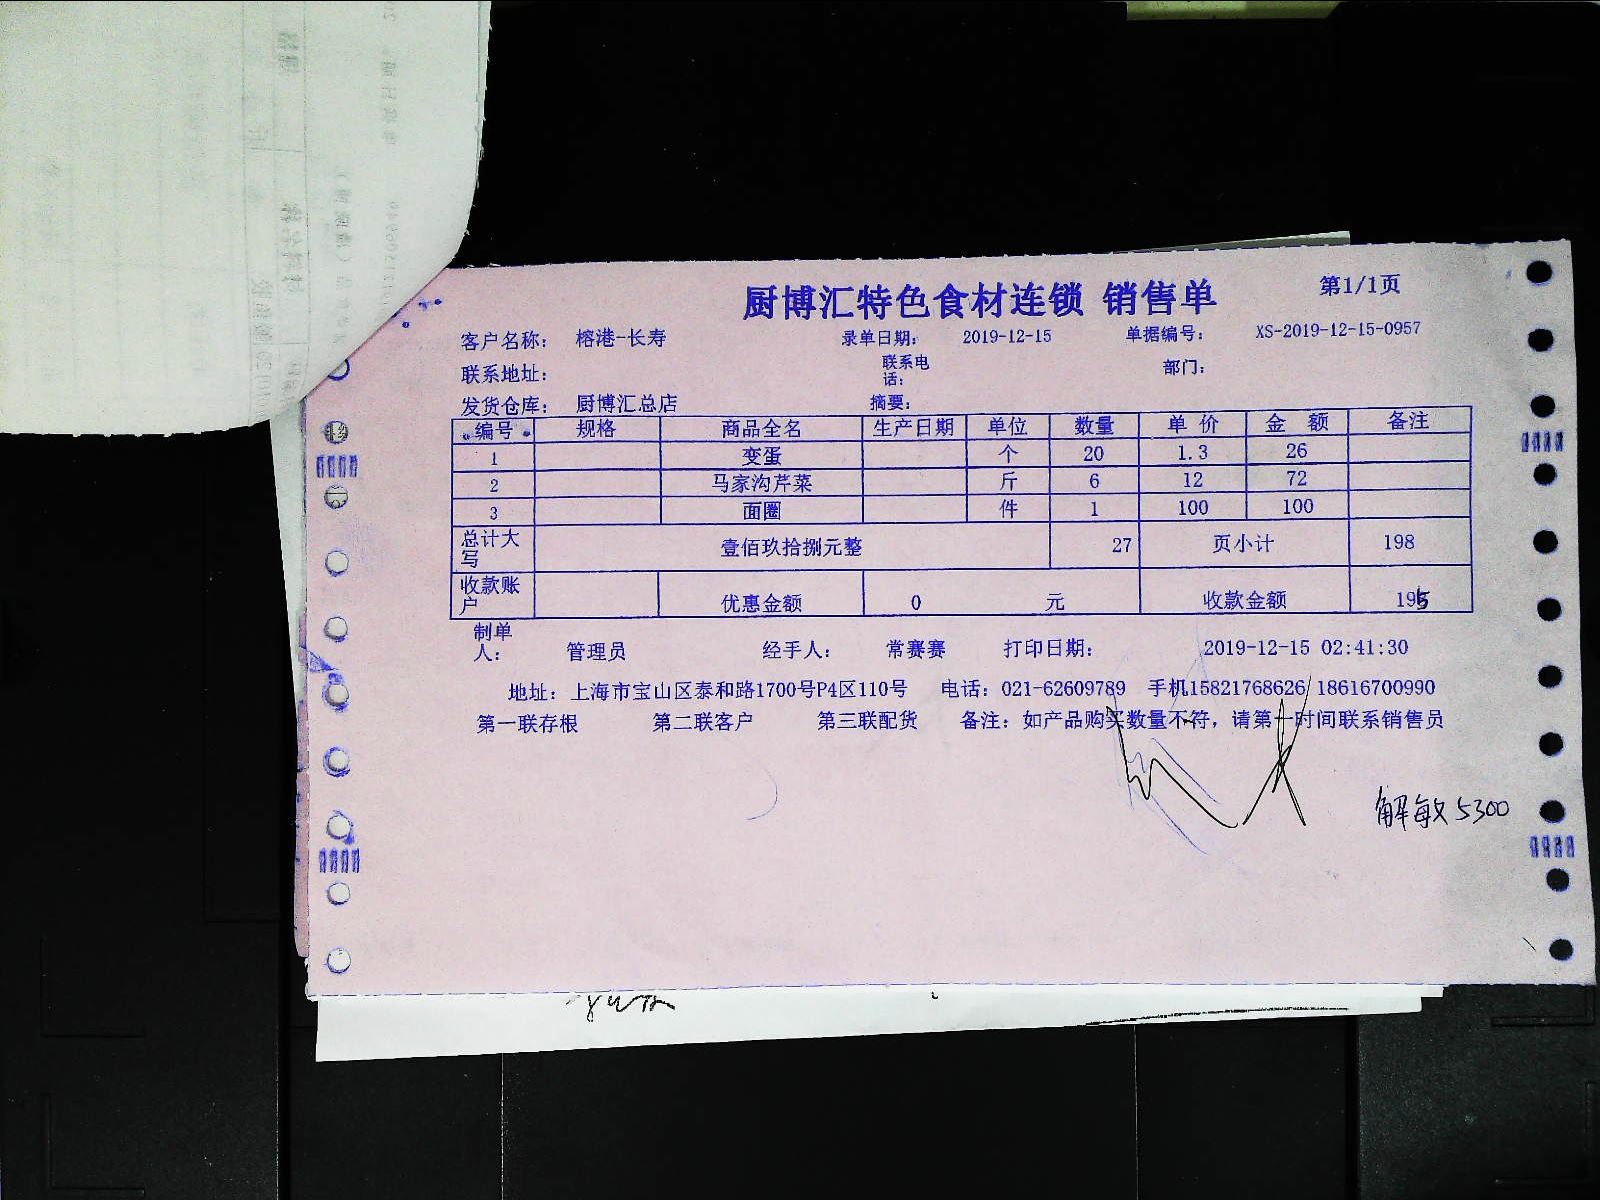 厨博汇特色食材连锁 销售单 第1/1页
客户名称： 榕港-长寿 录单日期： 2019-12-15 单据编号： XS-2019-12-15-0957
联系地址： 联系电话： 部门：
发货仓库： 厨博汇总店 摘要：
编号 规格 商品全名 生产日期 单位 数量 单价 金额 备注
1 变蛋 个 20 1.3 26
2 马家沟芹菜 斤 6 12 72
3 面圈 件 1 100 100
总计大写 壹佰玖拾捌元整 27 页小计 198
收款账户 优惠金额 0 元 收款金额 195
制单人： 管理员 经手人： 常赛赛 打印日期： 2019-12-15 02:41:30
地址：上海市宝山区泰和路1700号P4区110号 电话：021-62609789 手机15821768626 18616700990
第一联存根 第二联客户 第三联配货 备注：如产品购买数量不符，请第一时间联系销售员
解敏 5300